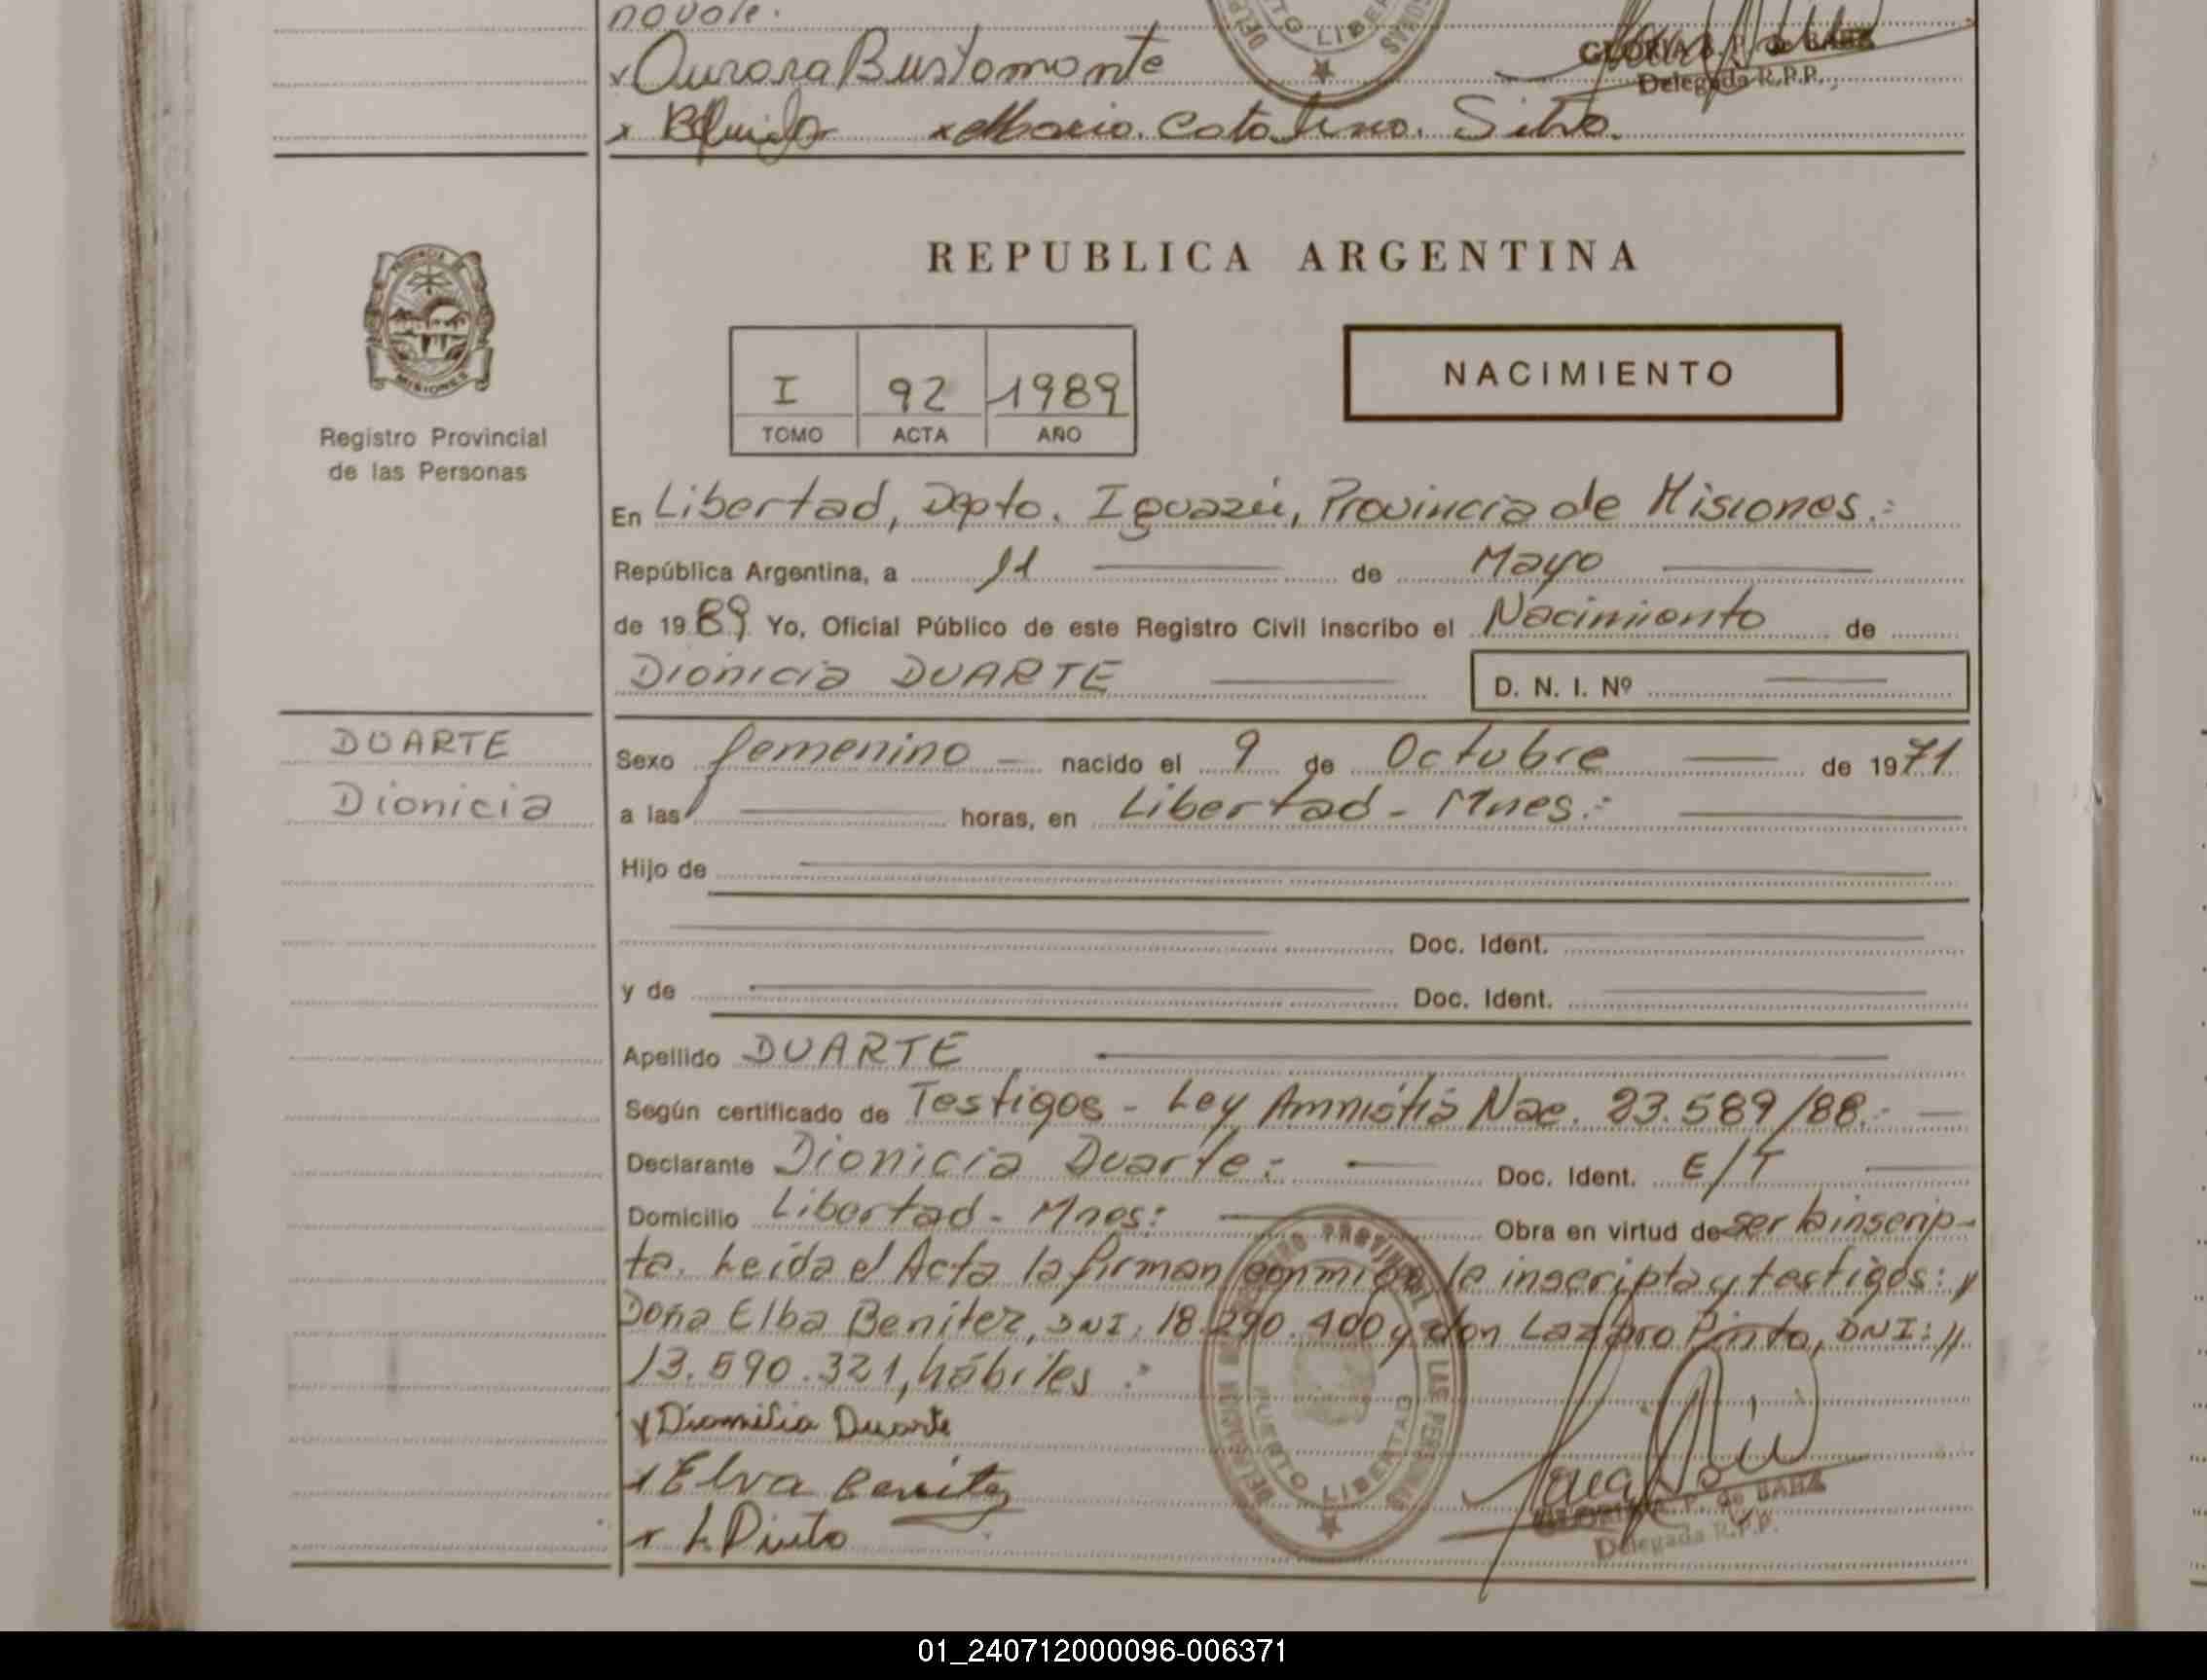 novole.
Aurora Bustamante
GLORIA S. P. de BAEZ
Delegada R.P.P.
x Maria Catalina Silva.
REPUBLICA ARGENTINA
PROVINCIA
MISIONES
Registro Provincial
de las Personas
I 92 1989
TOMO ACTA AÑO
NACIMIENTO
En Libertad, Dpto. Iguazú, Provincia de Misiones.:
República Argentina, a 11 de Mayo
de 1989 Yo, Oficial Público de este Registro Civil inscribo el Nacimiento de
Dionicia DUARTE D. N. I. Nº
DUARTE
Dionicia
Sexo femenino nacido el 9 de Octubre de 1971
a las horas, en Libertad - Mnes.:
Hijo de
Doc. Ident.
y de Doc. Ident.
Apellido DUARTE
Según certificado de Testigos - Ley Amnistía Nac. 23.589/88.-
Declarante Dionicia Duarte: Doc. Ident. E/T
Domicilio Libertad - Mnes: Obra en virtud de ser la inscrip-
ta. Leída el Acta la firman conmigo la inscripta y testigos: //
Doña Elba Benitez, DNI: 18.290.400 y don Lazaro Pinto, DNI: //
13.590.321, hábiles.:
x Dionisia Duarte
x Elva Benitez
x L. Pinto
REGISTRO PROVINCIAL DE LAS PERSONAS
PUERTO LIBERTAD
GLORIA S. P. de BAEZ
Delegada R.P.P.
01_240712000096-006371